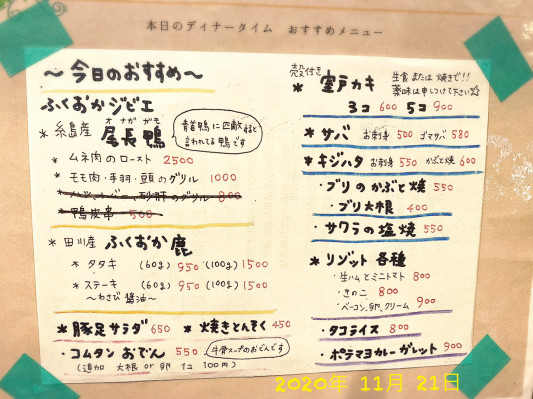 本日のディナータイム　おすすめメニュー
～今日のおすすめ～
ふくおかジビエ
* 糸島産 尾長鴨
オナガガモ
青首鴨に匹敵すると
言われてる鴨です
* ムネ肉のロースト 2500
* モモ肉・手羽・頭のグリル 1000
砂肝のグリル 800
* 鴨炭串 500
* 田川産 ふくおか鹿
* タタキ (60g) 950 (100g) 1500
* ステーキ (60g) 950 (100g) 1500
～わさび醤油～
* 豚足サラダ 650 * 焼きとんそく 450
・コムタンおでん 550
牛骨スープのおでんです
(追加 大根 or 卵 1コ 100円)
殻付き
* 室戸カキ
生食または焼きで!!
薬味は申しつけて下さい☆
3コ 600 5コ 900
* サバ お刺身 500 ゴマサバ 580
* キジハタ お刺身 550 かぶと焼 600
・ブリのかぶと焼 550
・ブリ大根 400
・サワラの塩焼 550
* リゾット各種
・生ハムとミニトマト 800
・きのこ 800
・ベーコン、卵、クリーム 900
・タコライス 800
・ポテマヨカレーガレット 900
2020年 11月 21日